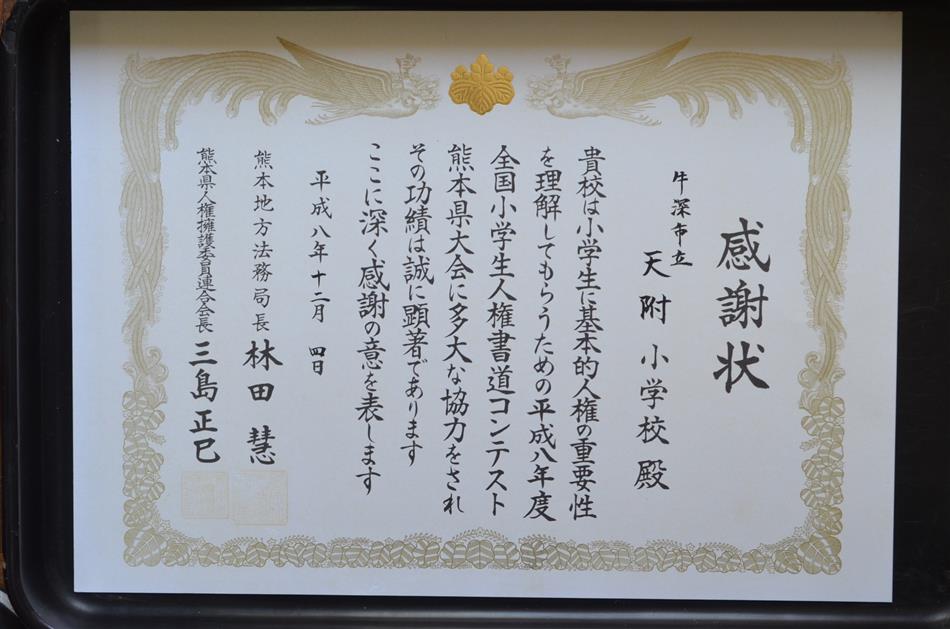 感謝状
牛深市立
天附小学校殿
貴校は小学生に基本的人権の重要性
を理解してもらうための平成八年度
全国小学生人権書道コンテスト
熊本県大会に多大な協力をされ
その功績は誠に顕著であります
ここに深く感謝の意を表します
平成八年十二月四日
熊本地方法務局長 林田慧
熊本県人権擁護委員連合会長 三島正巳